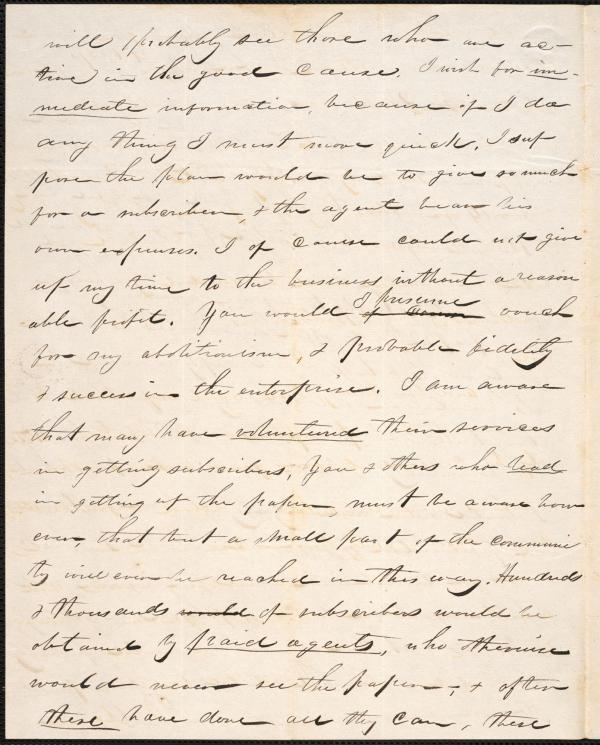 will probably see those who are ac-
tive in the good cause. I wish for im-
mediate information, because if I do
any thing I must move quick. I sup
pose the plan would be to give so much
for a subscriber, & the agent bear his
own expenses. I of course could not give
up my time to the business without a reason
able profit. You would I presume of course vouch
for my abolitionism, & probable fidelity
& success in the enterprise. I am aware
that many have volunteered their services
in getting subscribers. You & others who lead
in getting up the paper, must be aware how
ever, that but a small part of the communi
ty will ever be reached in this way. Hundreds
& thousands would of subscribers would be
obtained by paid agents, who otherwise
would never see the paper; & after
these have done all they can, these